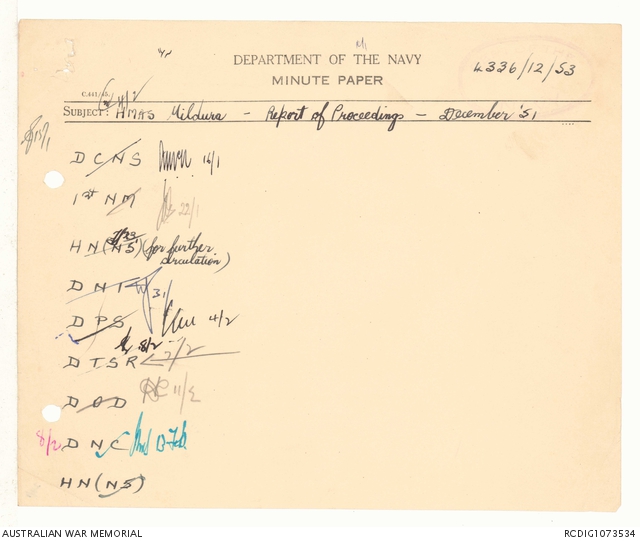 DEPARTMENT OF THE NAVY
MINUTE PAPER
4336/12/53
C.441/45.
SUBJECT: HMAS Mildura - Report of Proceedings - December '51
DCNS 16/1
1st NM 22/1
HN(NS) (for further circulation)
DNI 31/
DPS 4/2
8/2
DTSR 7/2
DOD 11/2
8/2 DNC 13 Feb
HN(NS)
AUSTRALIAN WAR MEMORIAL
RCDIG1073534